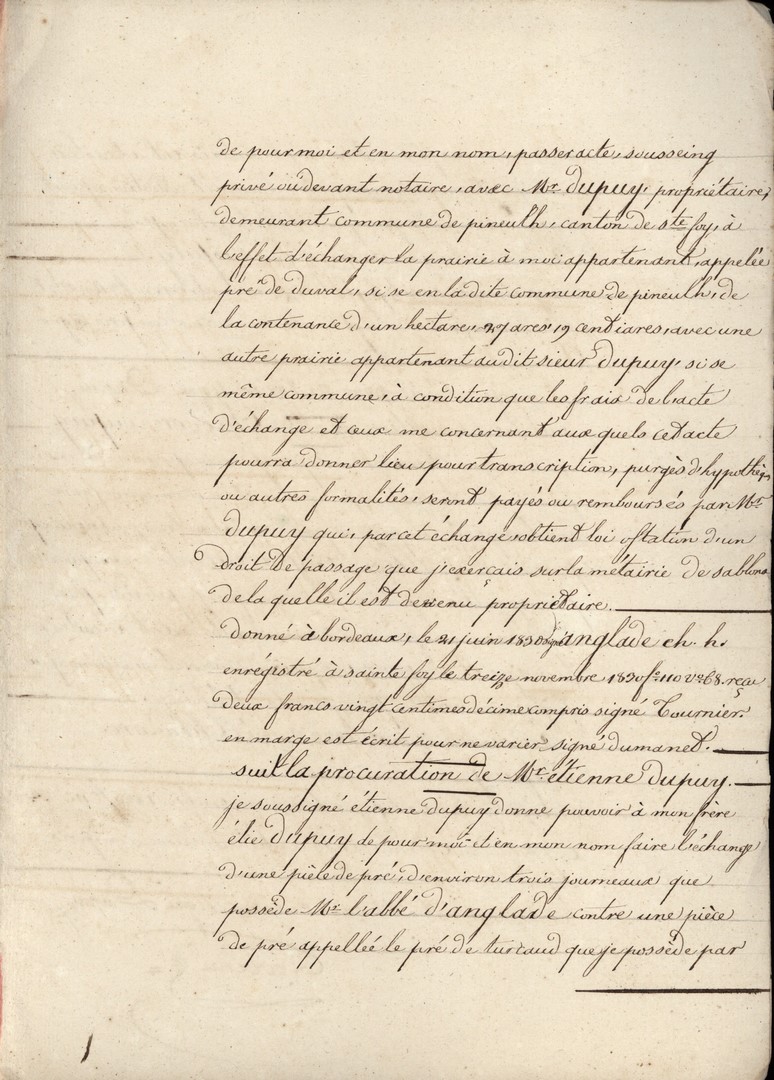 de pour moi et en mon nom, passer acte, sousseing
privé ou devant notaire, avec Mr. dupuy, propriétaire,
demeurant commune de pineulh, canton de ste foy, à
l'effet d'échanger la prairie à moi appartenant, appelée
pré de duval, si se en la dite commune de pineulh, de
la contenance d'un hectare, 27 ares, 19 centiares, avec une
autre prairie appartenant au dit sieur dupuy, si se
même commune, à condition que les frais de l'acte
d'échange et ceux me concernant aux quels cet acte
pourra donner lieu pour transcription, purges d'hypothèq
ou autres formalités, seront payés ou remboursés par Mr
dupuy qui, par cet échange, obtient loi oftation d'un
droit de passage que j'exerçais sur la métairie de sablons
de la quelle il est devenu propriétaire.
donné à bordeaux, le 21 juin 1850 signé anglade ch. h.
enrégistré à sainte foy le treize novembre 1850 fo. 110 vo. c. 8. reçu
deux francs vingt centimes décime compris signé Tournier.
en marge est écrit pour ne varier signé dumanet.
suit la procuration de Mr. étienne dupuy.
je soussigné étienne dupuy donne pouvoir à mon frère
élie dupuy de pour moi et en mon nom faire l'échange
d'une pièle de pré, d'environ trois journeaux que
possède Mr. l'abbé d'anglade contre une pièce
de pré appellée le pré de turcaud que je possède par